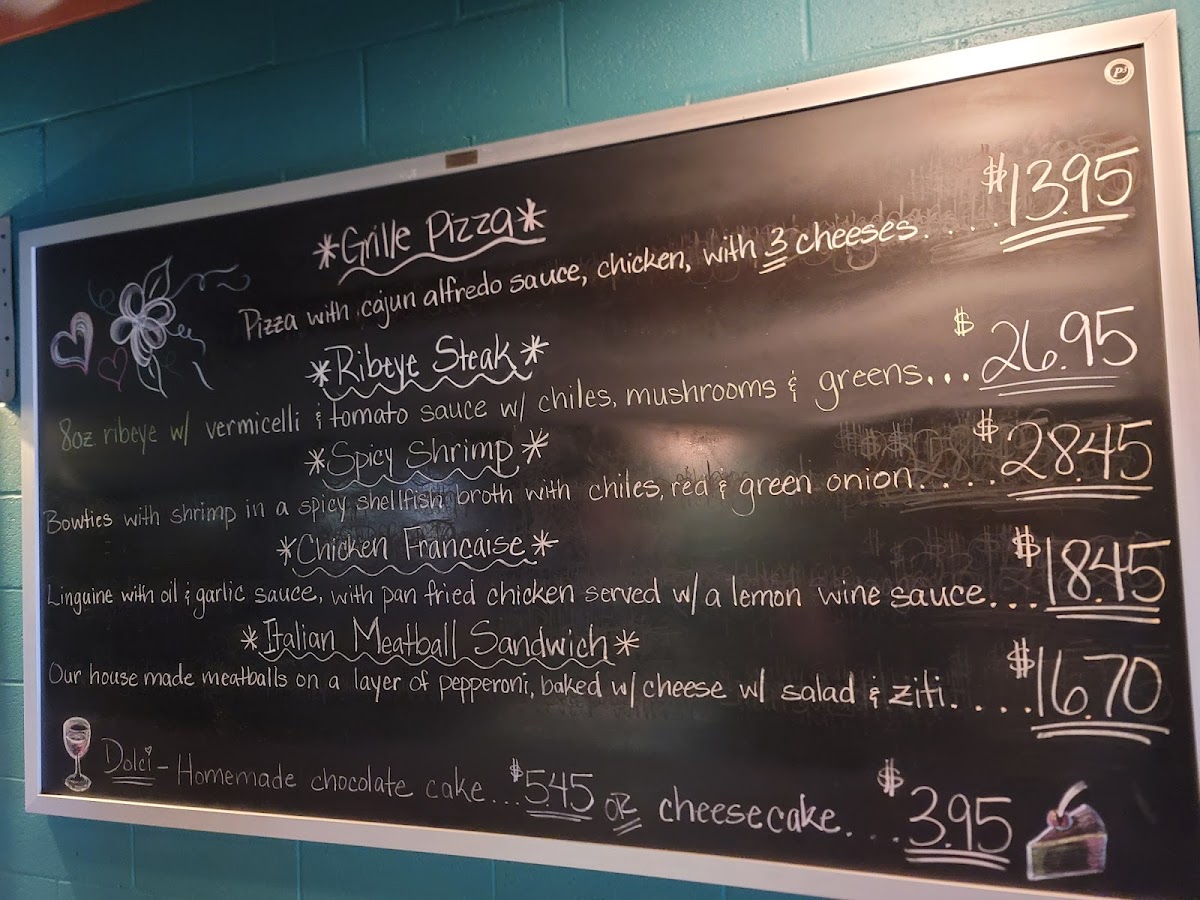 P3
*Grille Pizza*
Pizza with cajun alfredo sauce, chicken, with 3 cheeses.....$13.95
*Ribeye Steak*
8oz. ribeye w/ vermicelli & tomato sauce w/ chiles, mushrooms & greens...$26.95
*Spicy Shrimp*
Bowties with shrimp in a spicy shellfish broth with chiles, red & green onion.....$28.45
*Chicken Francaise*
Linguine with oil & garlic sauce, with pan fried chicken served w/ a lemon wine sauce...$18.45
*Italian Meatball Sandwich*
Our house made meatballs on a layer of pepperoni, baked w/ cheese w/ salad & ziti.....$16.70
Dolci - Homemade chocolate cake...$5.45 OR cheesecake....$3.95